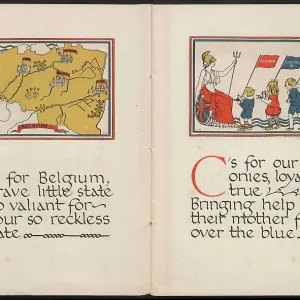 for Belgium,
rave little state
o valiant for-
our so reckless
ate
CANADA
C's for our
onies, loya
true
Bringing help
their mother f
over the blue.